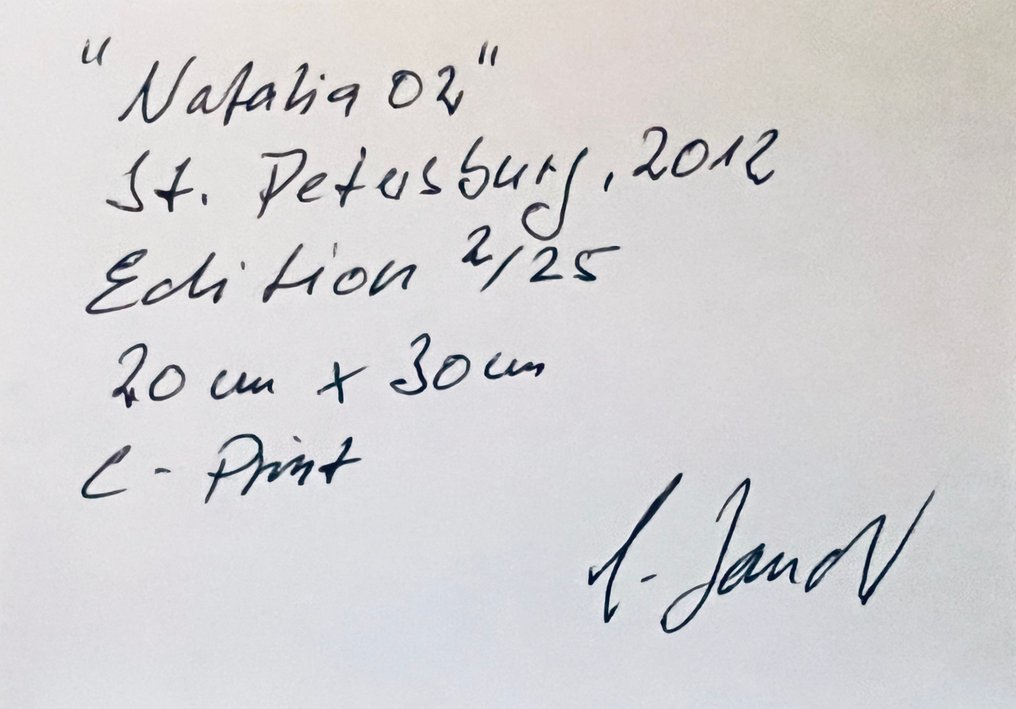 "Natalia 02"
St. Petersburg, 2012
Edition 2/25
20 cm x 30 cm
C - Print